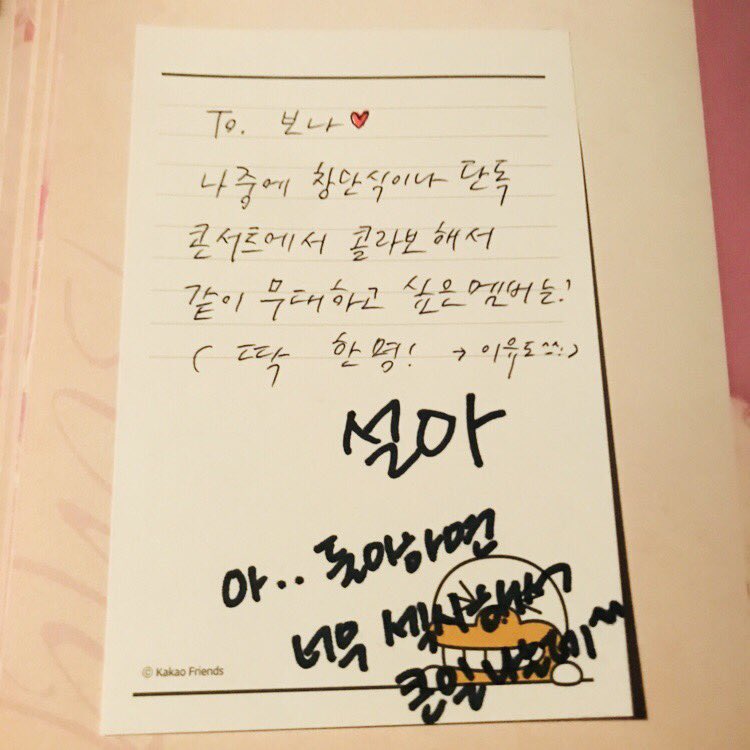 To. 보나♥
나중에 창단식이나 단독
콘서트에서 콜라보해서
같이 무대하고 싶은멤버는?
( 딱 한명! → 이유도^^!)
설아
아.. 둘아하면
너무 섹시해서
큰일나겠네~
© Kakao Friends